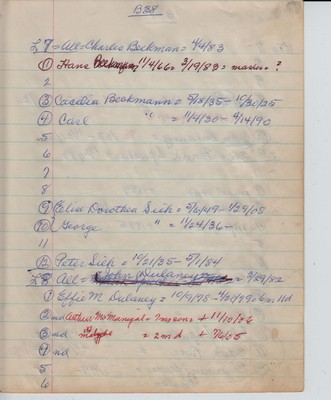 B38
L7 = All = Charles Beekman = 4/4/83
① Hans Beekmann 11/4/66 = 3/19/83 = marker = ?
2
③ Caecilia Beekmann = 5/18/35 - 10/30/25
④ Carl " = 11/4/30 - 4/14/90
5
6
7
8
⑨ Eliza Dorothea Sieh = 5/6/49 - 1/29/05
⑩ George " = 11/24/36 -
11
⑫ Peter Sieh = 10/21/35 - 5/1/84
L8 All = John Dulaney = 3/29/82
① Effie M. Dulaney = 10/9/78 -
② nd Arthur McManigal = 7 mo son = + 11/10/86
③ nd = 2 m d + 7/6/05
④ nd
5
6